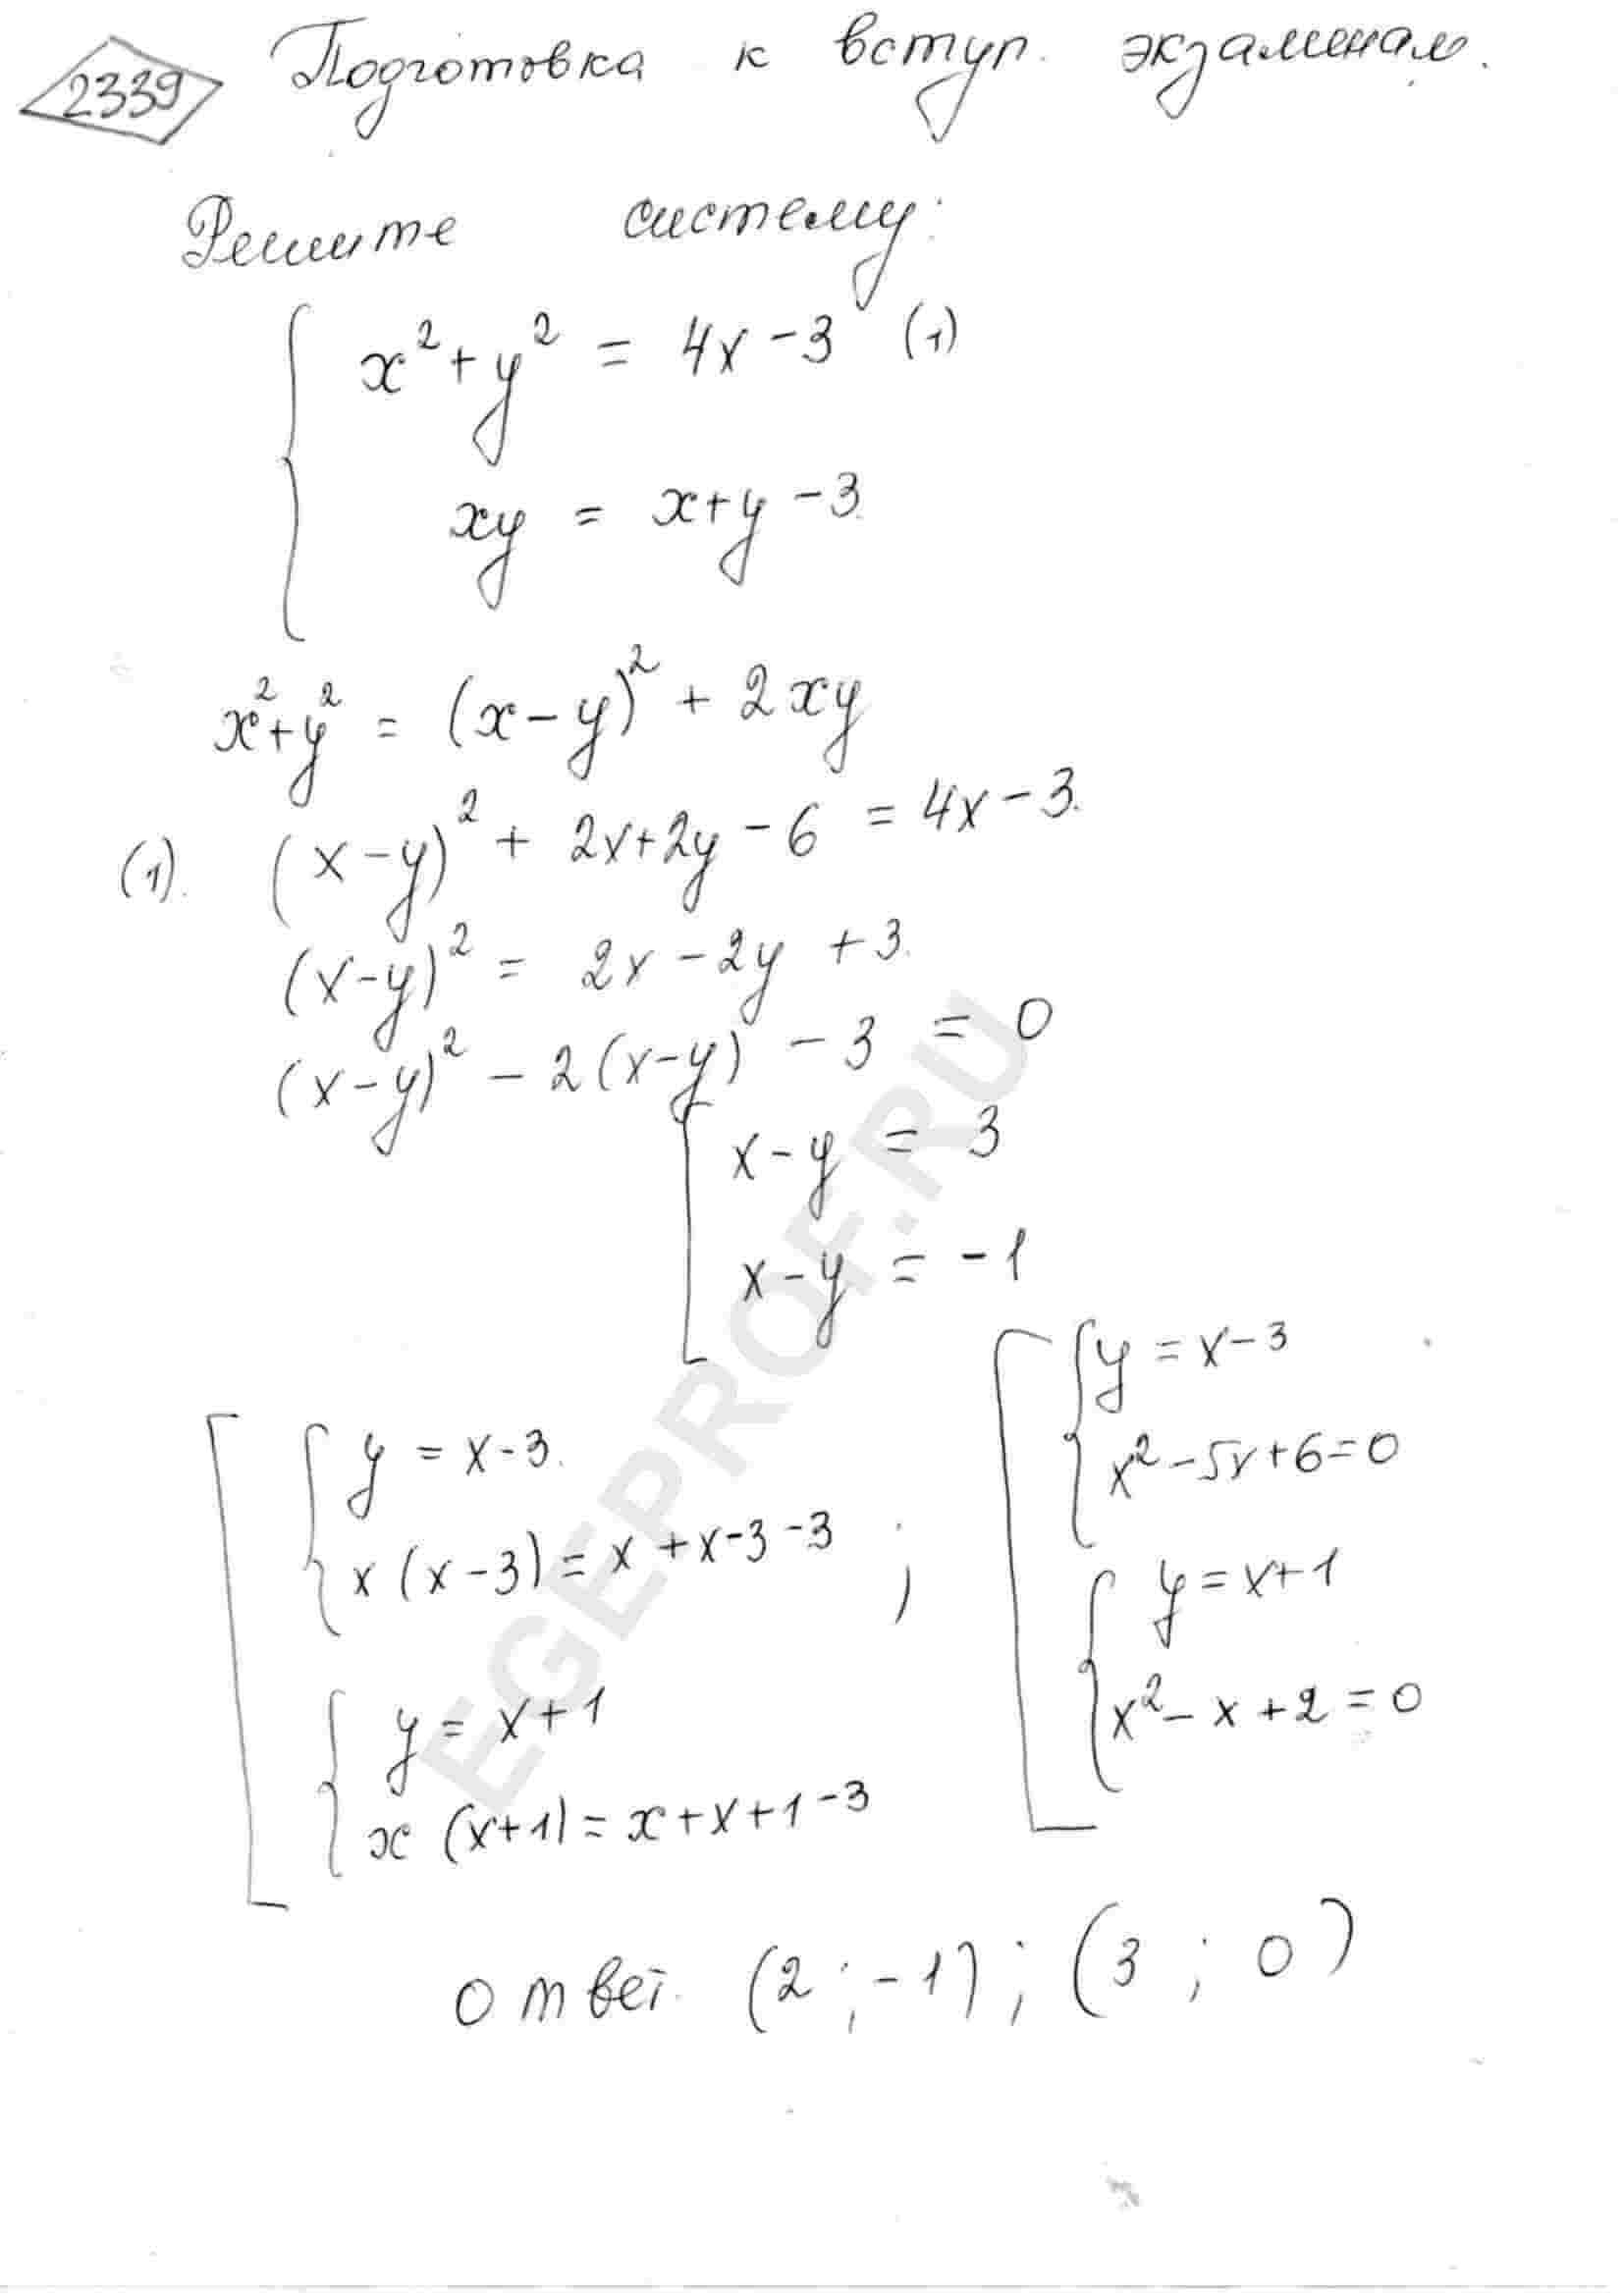 2339 Подготовка к вступ. экзаменам.
Решите систему:
{ x² + y² = 4x - 3 (1)
xy = x + y - 3
x² + y² = (x - y)² + 2xy
(1). (x - y)² + 2x + 2y - 6 = 4x - 3.
(x - y)² = 2x - 2y + 3.
(x - y)² - 2(x - y) - 3 = 0
[ x - y = 3
x - y = -1
[ { y = x - 3.
x(x - 3) = x + x - 3 - 3 ;
{ y = x + 1
x(x + 1) = x + x + 1 - 3
[ { y = x - 3
x² - 5x + 6 = 0
{ y = x + 1
x² - x + 2 = 0
Ответ. (2 ; -1) ; (3 ; 0)
EGEPROF.RU